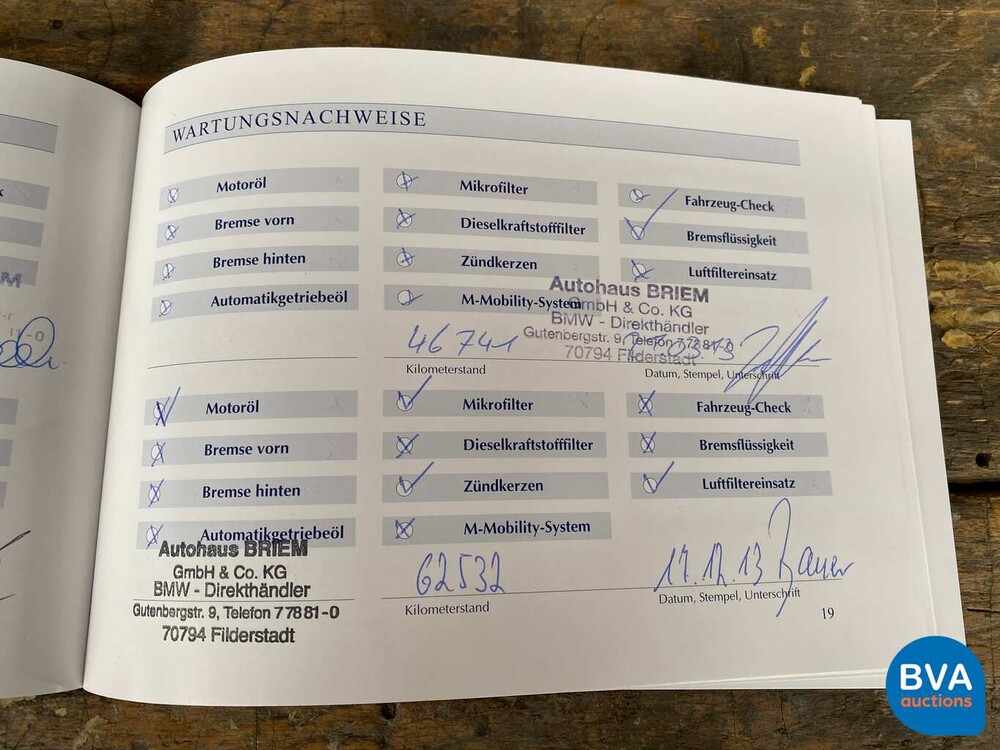 WARTUNGSNACHWEISE
Motoröl
Mikrofilter
Fahrzeug-Check
Bremse vorn
Dieselkraftstofffilter
Bremsflüssigkeit
Bremse hinten
Zündkerzen
Luftfiltereinsatz
Automatikgetriebeöl
M-Mobility-System
Autohaus BRIEM
GmbH & Co. KG
BMW - Direkthändler
Gutenbergstr. 9, Telefon 77881-0
70794 Filderstadt
46741
Kilometerstand
Datum, Stempel, Unterschrift
Motoröl
Mikrofilter
Fahrzeug-Check
Bremse vorn
Dieselkraftstofffilter
Bremsflüssigkeit
Bremse hinten
Zündkerzen
Luftfiltereinsatz
Automatikgetriebeöl
M-Mobility-System
Autohaus BRIEM
GmbH & Co. KG
BMW - Direkthändler
Gutenbergstr. 9, Telefon 77881-0
70794 Filderstadt
62532
Kilometerstand
17.12.13
Datum, Stempel, Unterschrift
19
BVA
auctions